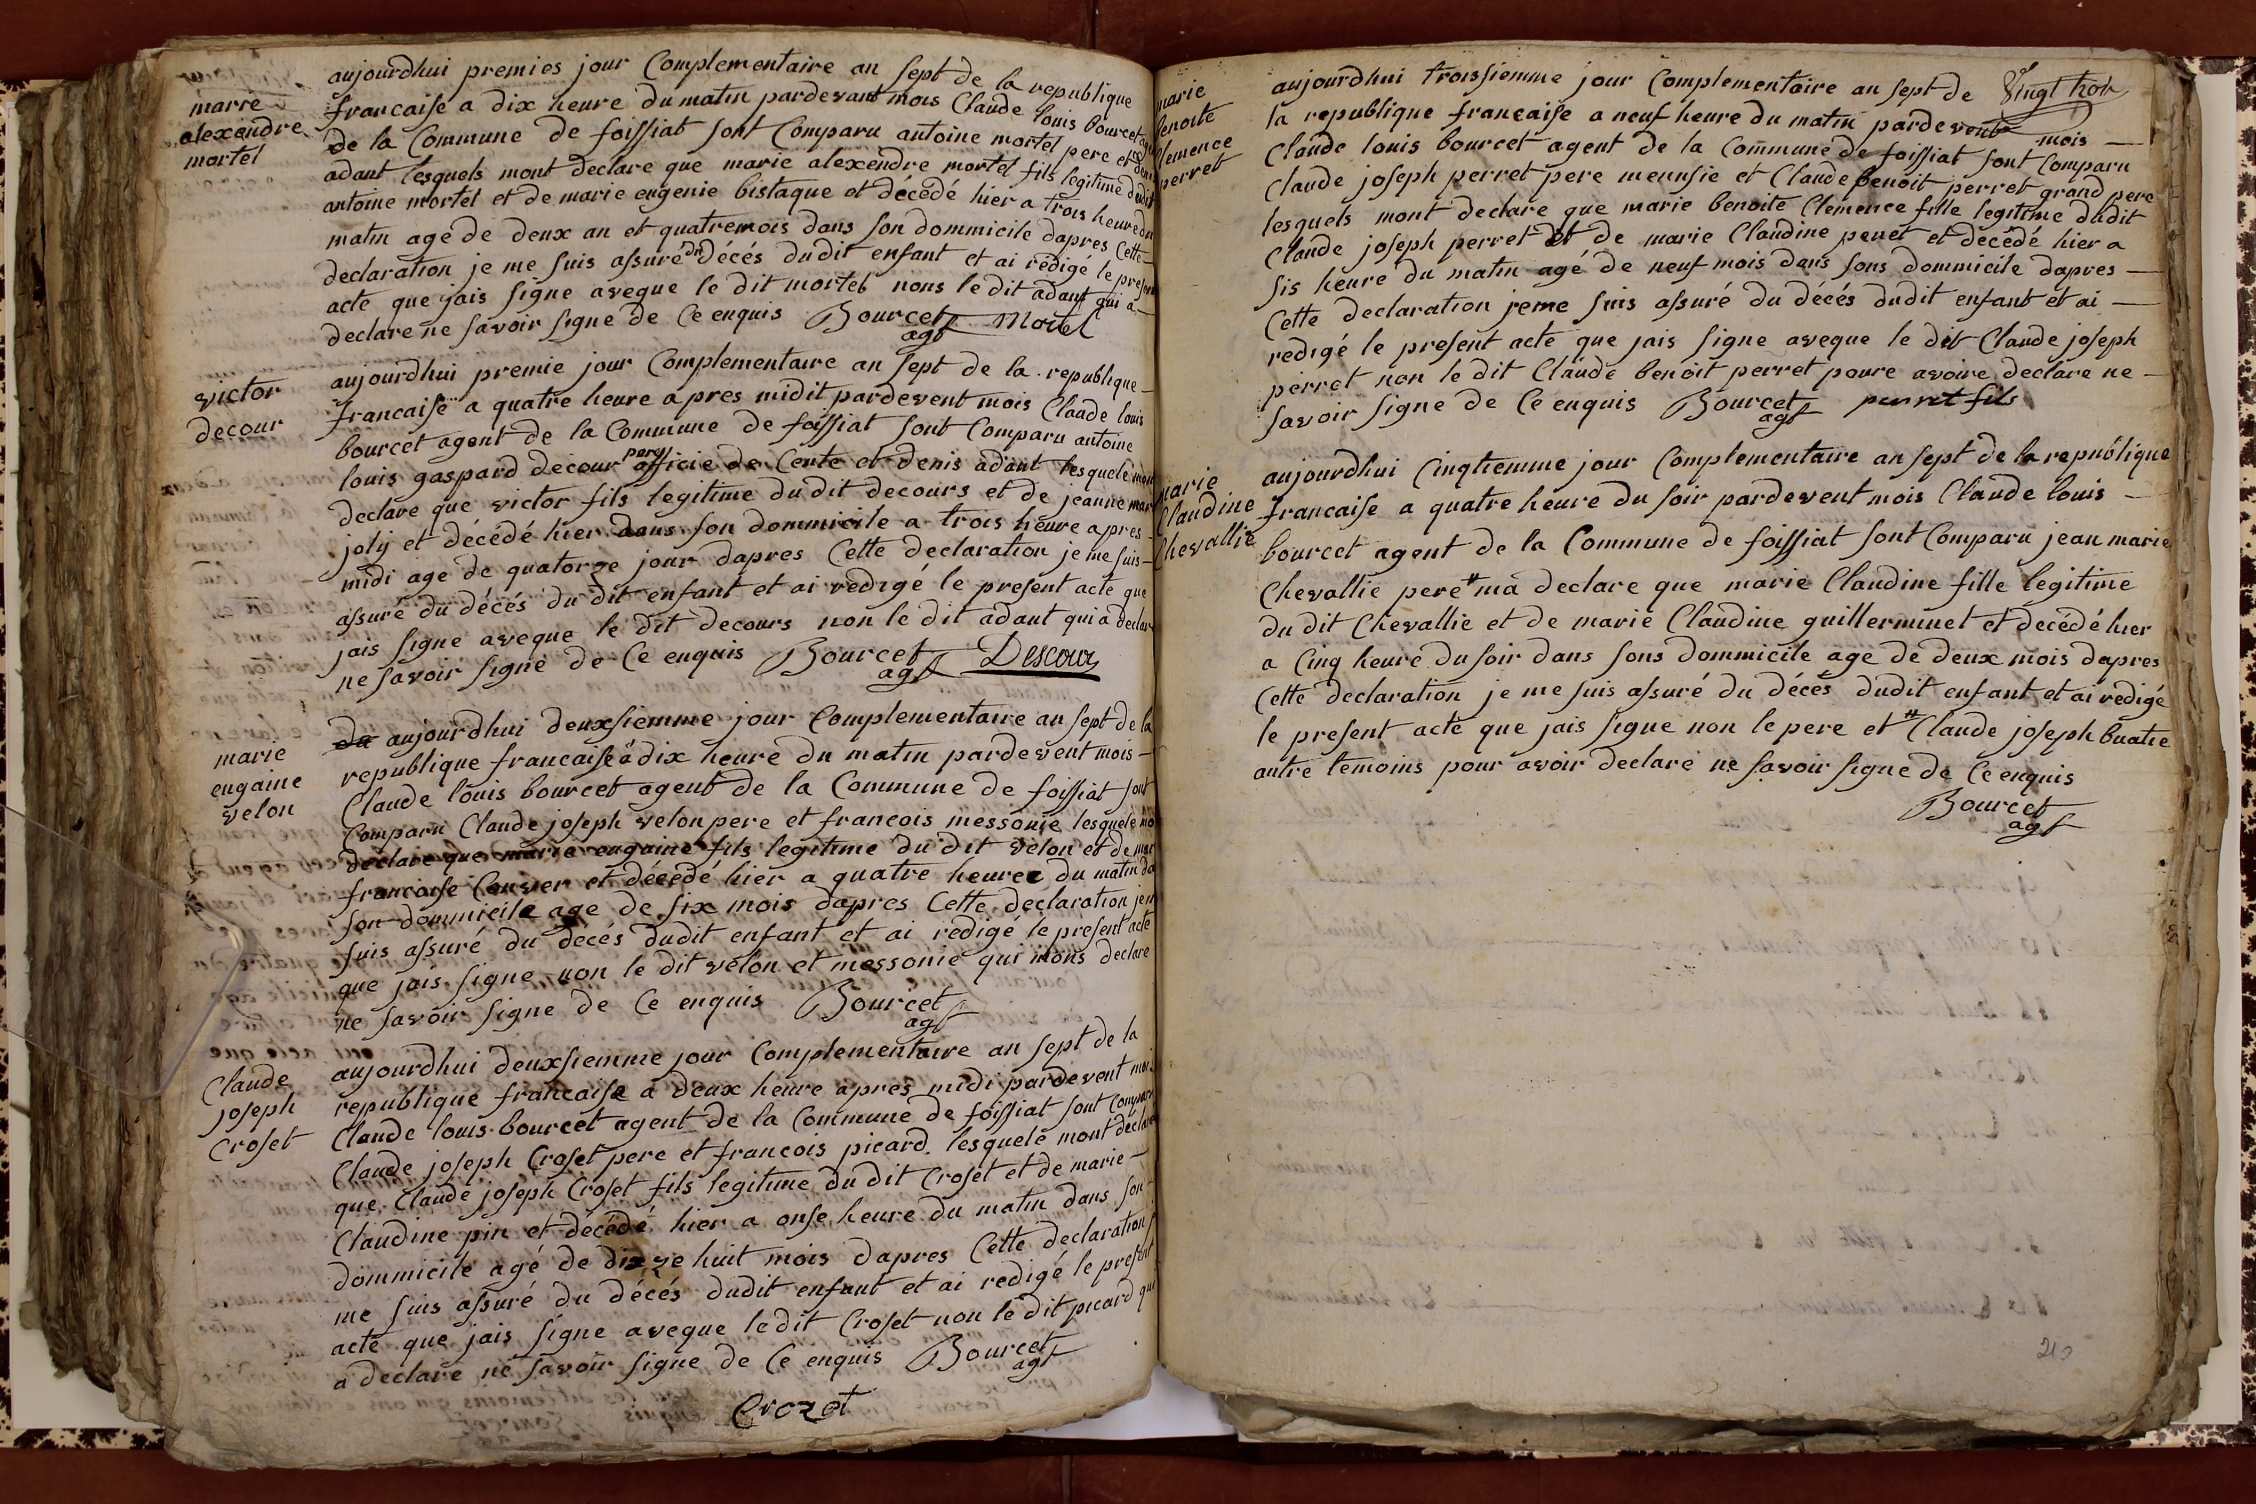 marie
alexendre
mortel
aujourdhui premies jour Complementaire an sept de la republique
francaise a dix heure du matin pardevant mois Claude louis bourcet
de la Commune de foissiat sont Comparu antoine mortel pere et
adant lesquels mont declare que marie alexendre mortel fils legitime dudit
antoine mortel et de marie eugenie bistaque et decédé hier a trois heure du
matin age de deux an et quatremois dans son dommicile dapres Cette
declaration je me suis assuré du décés dudit enfant et ai redigé le present
acte que jais signe aveque le dit mortel nons le dit adant qui a
declare ne savoir signe de Ce enquis Bourcet Mortel
agt
victor
decour
aujourdhui premie jour Complementaire an sept de la republique
francaise a quatre heure apres midit pardevent mois Claude louis
bourcet agent de la Commune de foissiat sont Comparu antoine
louis gaspard decour pere officie de Cente et denis adant lesquele mont
declare que victor fils legitime du dit decours et de jeanne marie
joly et décédé hier dans son dommicile a trois heure apres
midi age de quatorze jour dapres Cette declaration je me suis
assuré du décés du dit enfant et ai redigé le present acte que
jais signe aveque le dit decours non le dit adant qui a declare
ne savoir signe de Ce enquis Bourcet Descour
agt
marie
engaine
velon
aujourdhui deuxsiemme jour Complementaire an sept de la
republique francaise a dix heure du matin pardevent mois
Claude louis bourcet agent de la Commune de foissiat sont
Comparu Claude joseph velon pere et francois messonie lesquele mon
declare que marie engaine fils legitime du dit velon et de mar
francoise Couver et décédé hier a quatre heuree du matin da
son dommicile age de six mois dapres Cette declaration je m
suis assuré du decés dudit enfant et ai redigé le present acte
que jais signe non le dit velon et messonie qui mons declare
ne savoir signe de Ce enquis Bourcet
agt
Claude
joseph
Croset
aujourdhui deuxsiemme jour Complementaire an sept de la
republique francaise a deux heure apres midi pardevent mois
Claude louis bourcet agent de la Commune de foissiat sont Comparu
Claude joseph Croset pere et francois picard lesquele mont declare
que Claude joseph Croset fils legitime du dit Croset et de marie
Claudine pin et décédé hier a onse heure du matin dans son
dommicile agé de dix ze huit mois dapres Cette declaration je
me suis assuré du décés dudit enfant et ai redigé le present
acte que jais signe aveque le dit Croset non le dit picard qui
a declare ne savoir signe de Ce enquis Bourcet
agt
Crozet
marie
benoite
Clemence
perret
Vingt trois
aujourdhui troissiemme jour Complementaire an sept de
la republique francaise a neuf heure du matin pardevent mois
Claude louis bourcet agent de la Commune de foissiat sont Comparu
Claude joseph perret pere meunsie et Claude benoit perret grand pere
lesquels mont declare que marie benoite Clemence fille legitime dudit
Claude joseph perret et de marie Claudine penet et decédé hier a
sis heure du matin agé de neuf mois dans sons dommicile dapres
Cette declaration jeme suis assuré du décés dudit enfant et ai
redigé le present acte que jais signe aveque le dit Claude joseph
perret non le dit Claude benoit perret poure avoire declare ne
savoir signe de Ce enquis Bourcet perret fils
agt
marie
Claudine
Chevallie
aujourdhui Cinqtiemme jour Complementaire an sept de la republique
francaise a quatre heure du soir pardevent mois Claude louis
bourcet agent de la Commune de foissiat sont Comparu jean marie
Chevallie pere # ma declare que marie Claudine fille legitime
du dit Chevallie et de marie Claudine guillerminet et decédé hier
a Cinq heure du soir dans sons dommicile age de deux mois dapres
Cette declaration je me suis assuré du décés dudit enfant et ai redigé
le present acte que jais signe non le pere et # Claude joseph buatie
autre temoins pour avoir declare ne savoir signe de Ce enquis
Bourcet
agt